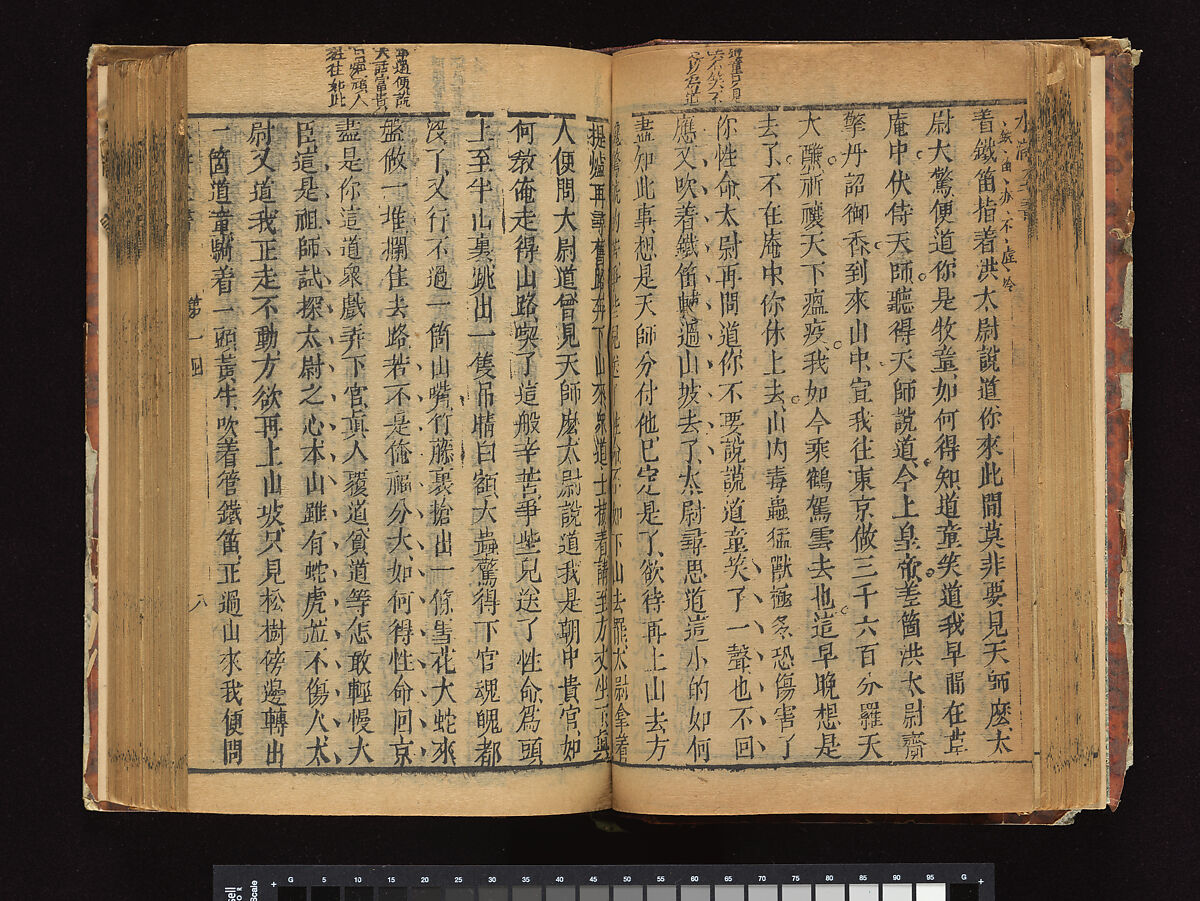 水滸全書
着鐵笛指着洪太尉說道你來此間莫非要見天師麽太
尉大驚便道你是牧童如何得知道童笑道我早間在草
庵中伏侍天師聽得天師說道今上皇帝差箇洪太尉齎
擎丹詔御香到來山中宣我往東京做三千六百分羅天
大醮祈禳天下瘟疫我如今乘鶴駕雲去也這早晚想是
去了不在庵中你休上去山內毒蟲猛獸極多恐傷害了
你性命太尉再問道你不要說謊道童笑了一聲也不回
應又吹着鐵笛轉過山坡去了太尉尋思道這小的如何
盡知此事想是天師分付他已定是了欲待再上山去方
纔驚諕的苦爭些兒送了性命不如下山去罷太尉拿着
提爐再尋舊路奔下山來衆道士接着請至方丈坐下眞
人便問太尉道曾見天師麽太尉說道我是朝中貴官如
何教俺走得山路喫了這般辛苦爭些兒送了性命爲頭
上至半山裏跳出一隻吊睛白額大蟲驚得下官魂魄都
沒了又行不過一箇山嘴竹藤裏搶出一條雪花大蛇來
盤做一堆攔住去路若不是俺福分大如何得性命回京
盡是你這道衆戲弄下官眞人覆道貧道等怎敢輕慢大
臣這是祖師試探太尉之心本山雖有蛇虎並不傷人太
尉又道我正走不動方欲再上山坡只見松樹傍邊轉出
一箇道童騎着一頭黃牛吹着管鐵笛正過山來我便問
第一回
八
便說
大話富貴
人
往往如此
G 5 10 15 20 25 30 35 40 45 50 55 60 65 70 75 80 85 90 95 G